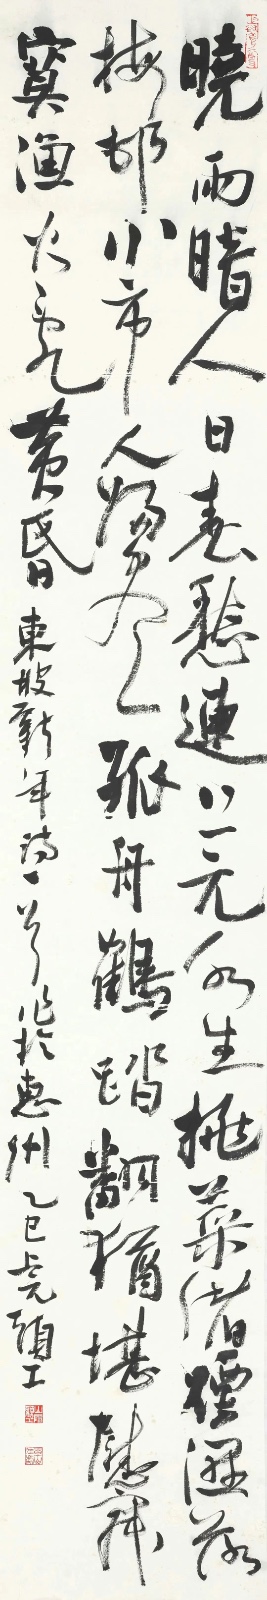 曉雨暗人日春愁連上元水生挑菜渚煙濕落
梅邨小市人歸盡孤舟鶴踏翻猶堪慰寂
寞漁火亂黃昏東坡新年詩一首作於惠州乙巳上元顧工